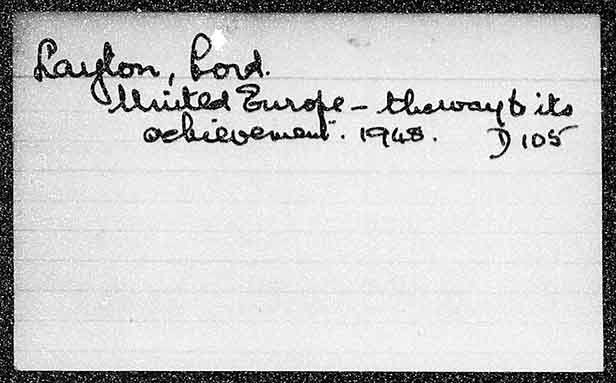 Layton, Lord.
United Europe - the way to its
achievement. 1948. D 105